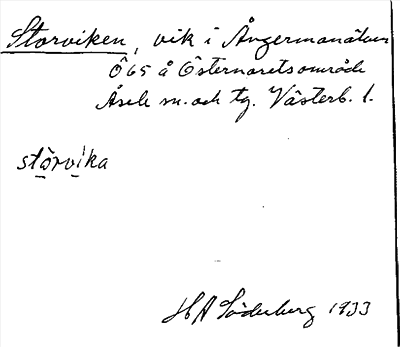 Storviken, vik i Ångermanälven
Ö 65 å Östernoretsområde
Åsele sn. och tg. Västerb. l.
stòrvika
H A Söderberg 1933